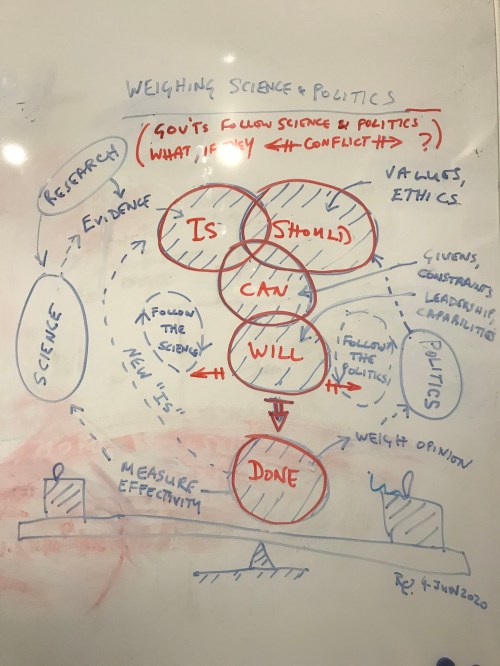 WEIGHING SCIENCE & POLITICS
(GOV'TS FOLLOW SCIENCE & POLITICS
WHAT, IF THEY CONFLICT ?)
RESEARCH
EVIDENCE
IS
SHOULD
VALUES,
ETHICS
CAN
GIVENS,
CONSTRAINTS
LEADERSHIP,
CAPABILITIES
WILL
SCIENCE
FOLLOW
THE
SCIENCE
NEW "IS"
FOLLOW
THE
POLITICS
POLITICS
DONE
MEASURE
EFFECTIVITY
WEIGH OPINION
4-JUN 2020